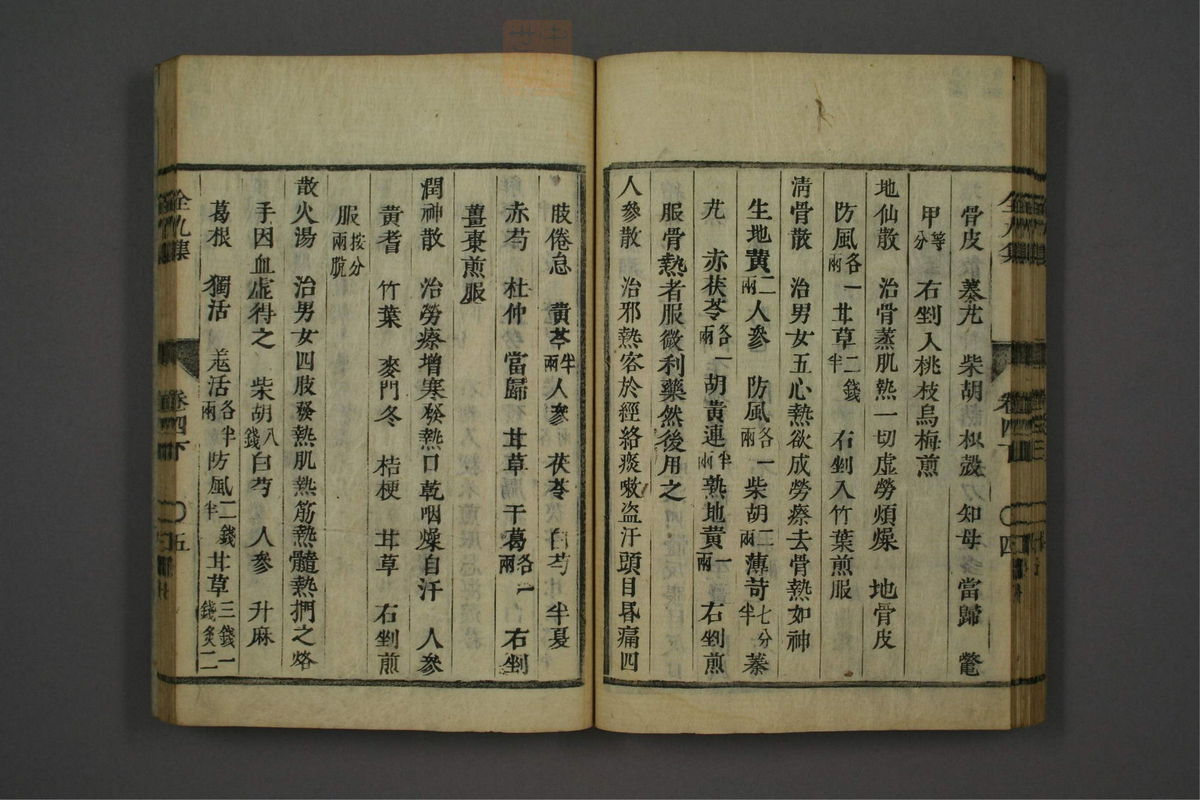 骨皮 蓁艽 柴胡 枳殻 知母 當歸 鼈
甲等分 右剉入桃枝烏梅煎
地仙散 治骨蒸肌熱一切虚勞煩燥 地骨皮
防風各一兩 甘草二錢半 右剉入竹葉煎服
淸骨散 治男女五心熱欲成勞瘵去骨熱如神
生地黄二兩人參 防風各一兩柴胡二兩薄苛七分半蓁
艽 赤茯苓各一兩胡黄連半兩熟地黄一兩 右剉煎
服骨熱者服微利藥然後用之
人參散 治邪熱客於經絡痰嗽盗汗頭目昏痛四
全九集 卷四下 〇四
肢倦怠 黄芩半兩人參 茯苓 白芍 半夏
赤芍 杜仲 當歸 甘草 干葛各一兩 右剉
薑棗煎服
潤神散 治勞瘵增寒發熱口乾咽燥自汗 人參
黄耆 竹葉 麥門冬 桔梗 甘草 右剉煎
服按分兩脫
散火湯 治男女四肢發熱肌熱筋熱髓熱捫之烙
手因血虚得之 柴胡八錢白芍 人參 升麻
葛根 獨活 羌活各半兩防風二錢半甘草三錢一錢炙二
全九集 卷四下 〇五